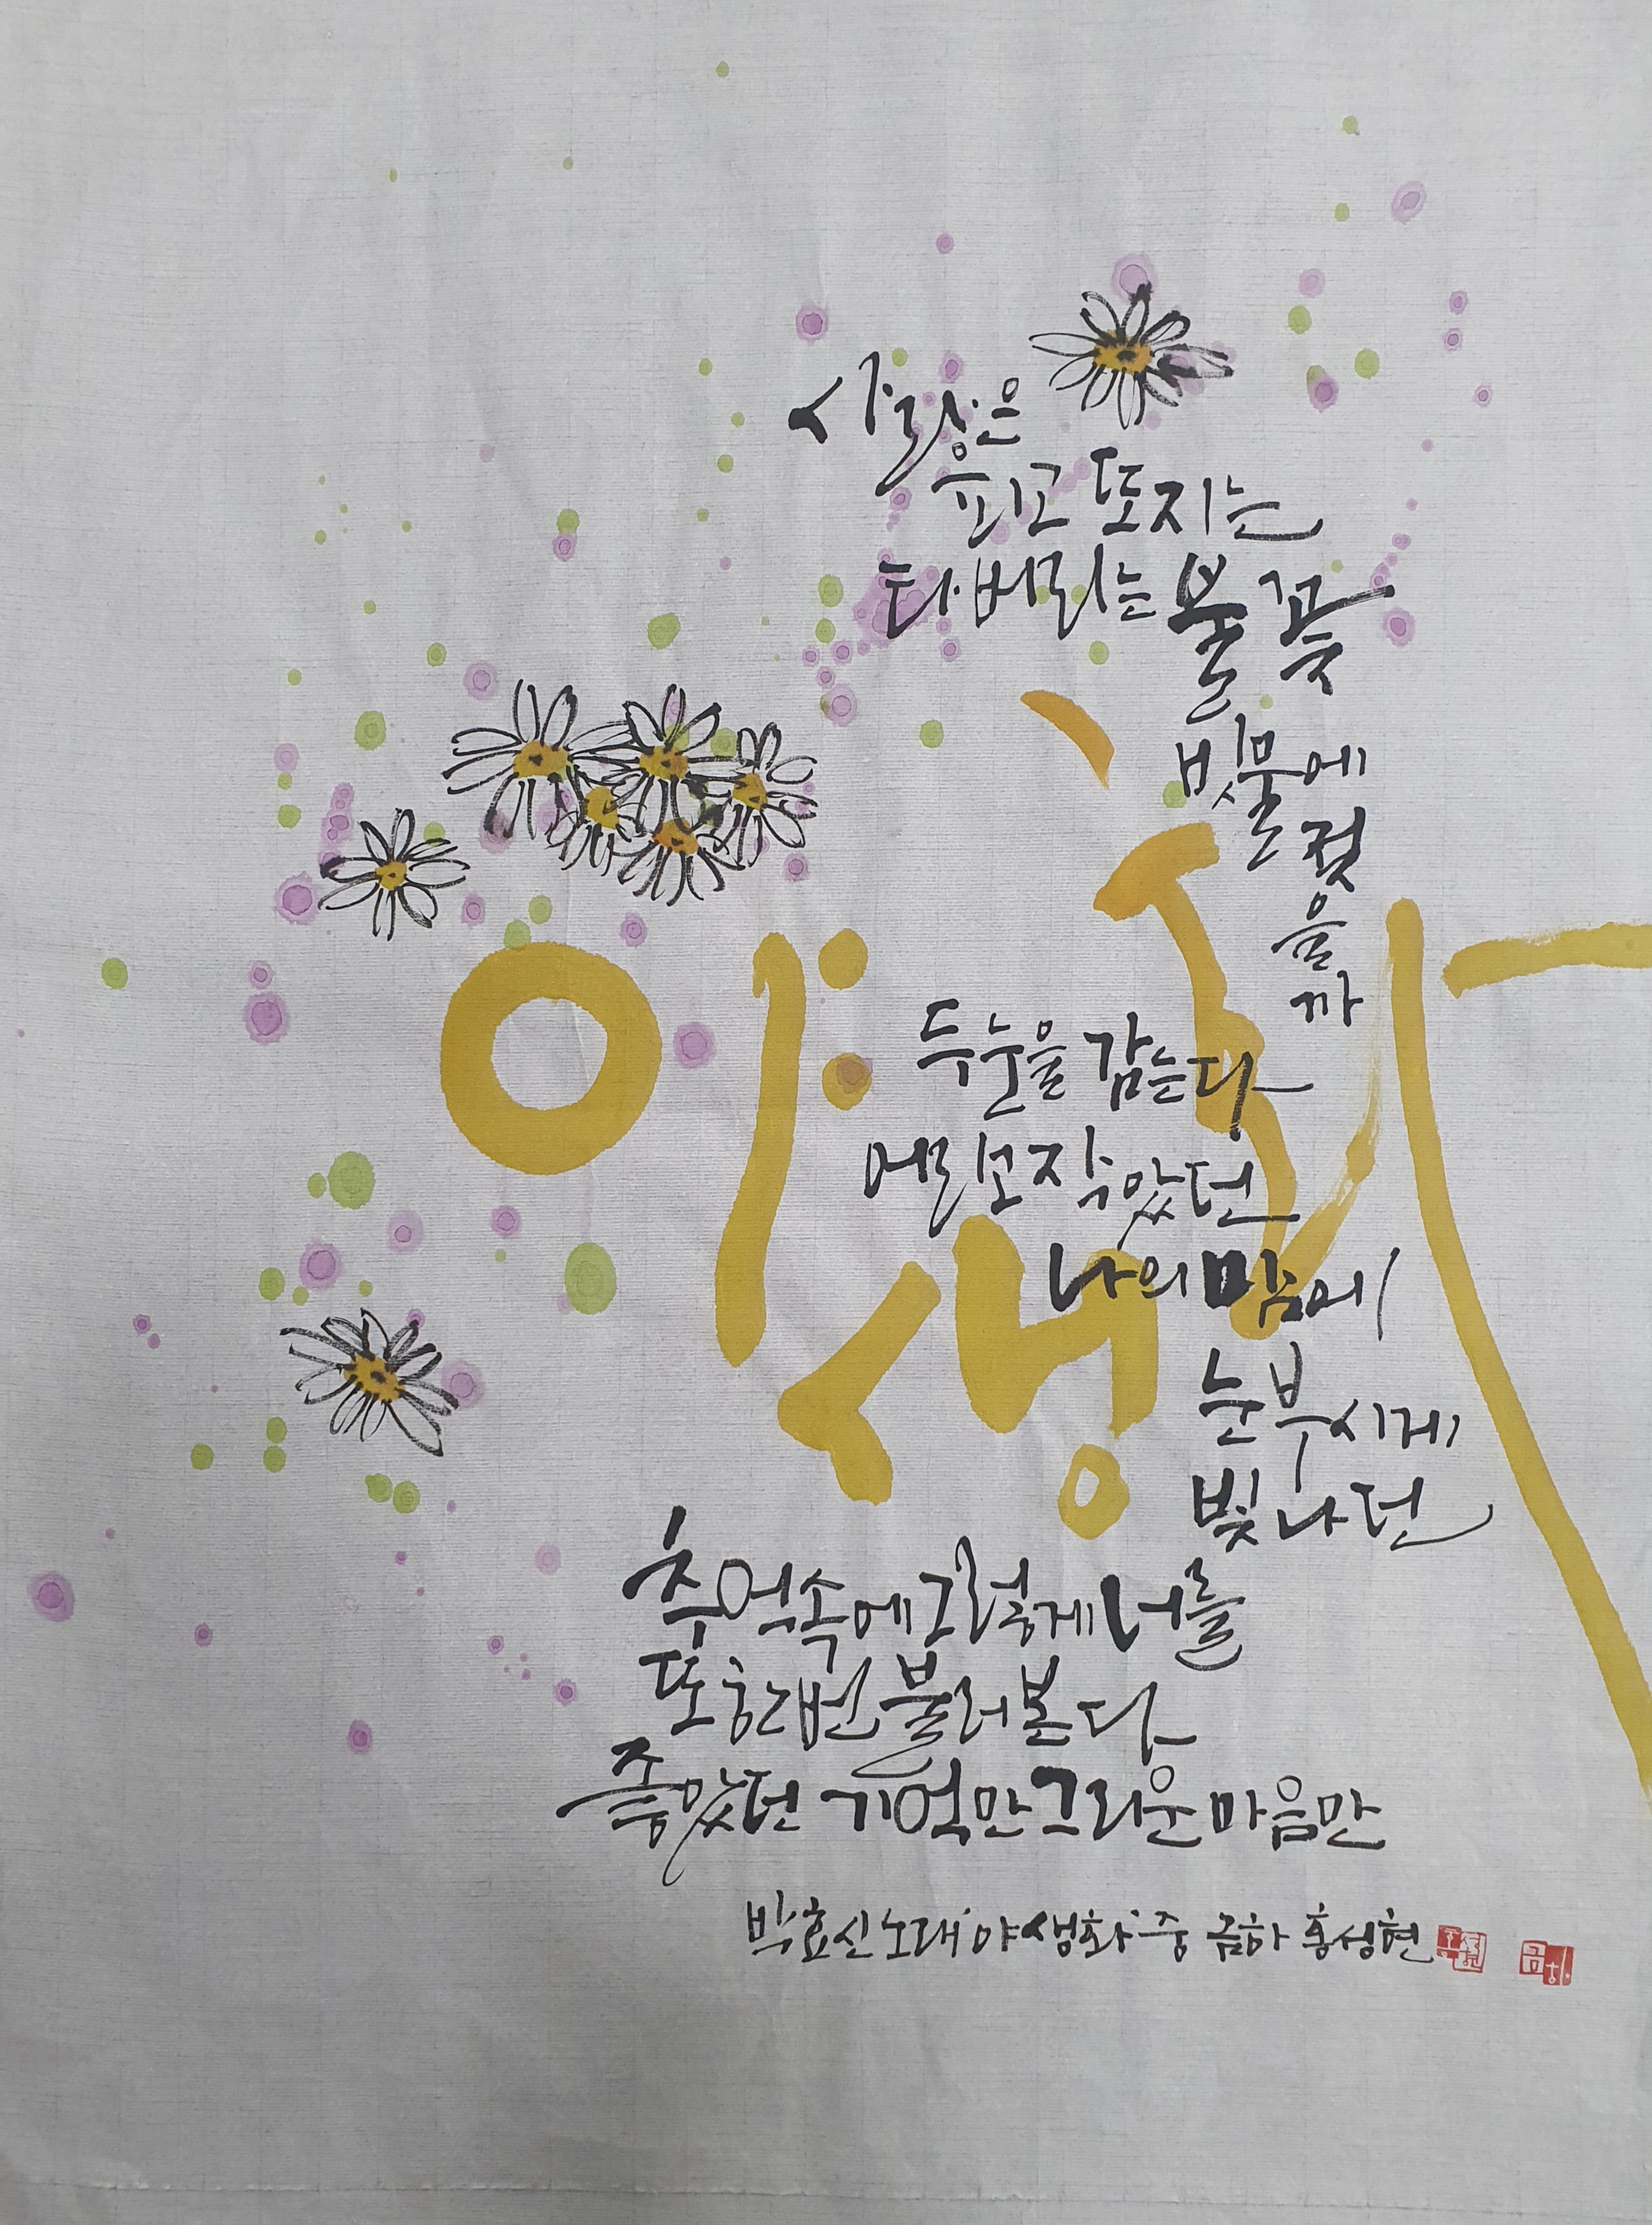 사랑은
피고 또 지는
타버리는 불꽃
빗물에
젖
을
까
두 눈을 감는다
어리고 작았던
나의 맘에
눈부시게
빛나던
추억 속에 그렇게 너를
또 한번 불러본다
좋았던 기억만 그리운 마음만
야생화
박효신 노래 '야생화' 중 금하 홍성현
금하